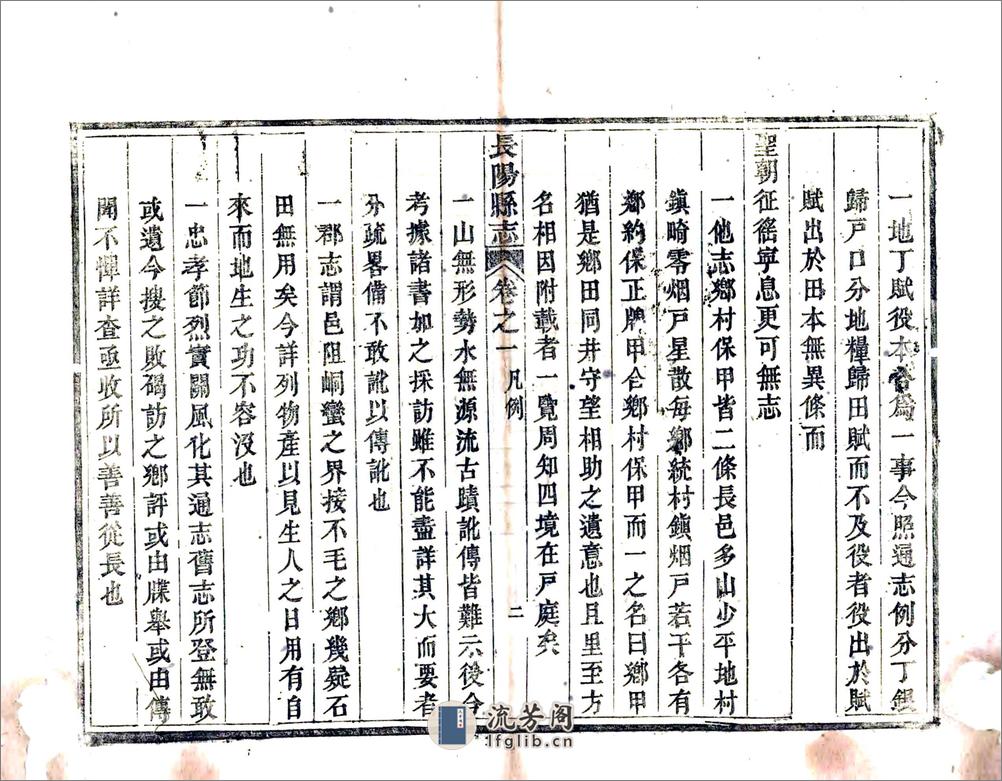 一地丁賦役本合爲一事今照通志例分丁銀
歸戸口分地糧歸田賦而不及役者役出於賦
賦出於田本無異條而
聖朝征徭寧息更可無志
一他志鄉村保甲皆二條長邑多山少平地村
鎮畸零烟戸星散每鄉統村鎮烟戸若干各有
鄉約保正牌甲合鄉村保甲而一之名曰鄉甲
猶是鄉田同井守望相助之遺意也且里至方
名相因附載者一覽周知四境在戸庭矣
長陽縣志 卷之一 凡例 二
一山無形勢水無源流古蹟訛傳皆難示後今
考據諸書加之採訪雖不能盡詳其大而要者
分疏畧備不敢訛以傳訛也
一郡志謂邑阻峒蠻之界接不毛之鄉幾嶷石
田無用矣今詳列物產以見生人之日用有自
來而地生之功不容沒也
一忠孝節烈實關風化其通志舊志所登無敢
或遺今搜之敗碣訪之鄉評或由牒舉或由傳
聞不憚詳查亟收所以善善從長也
流芳阁
lfglib.cn